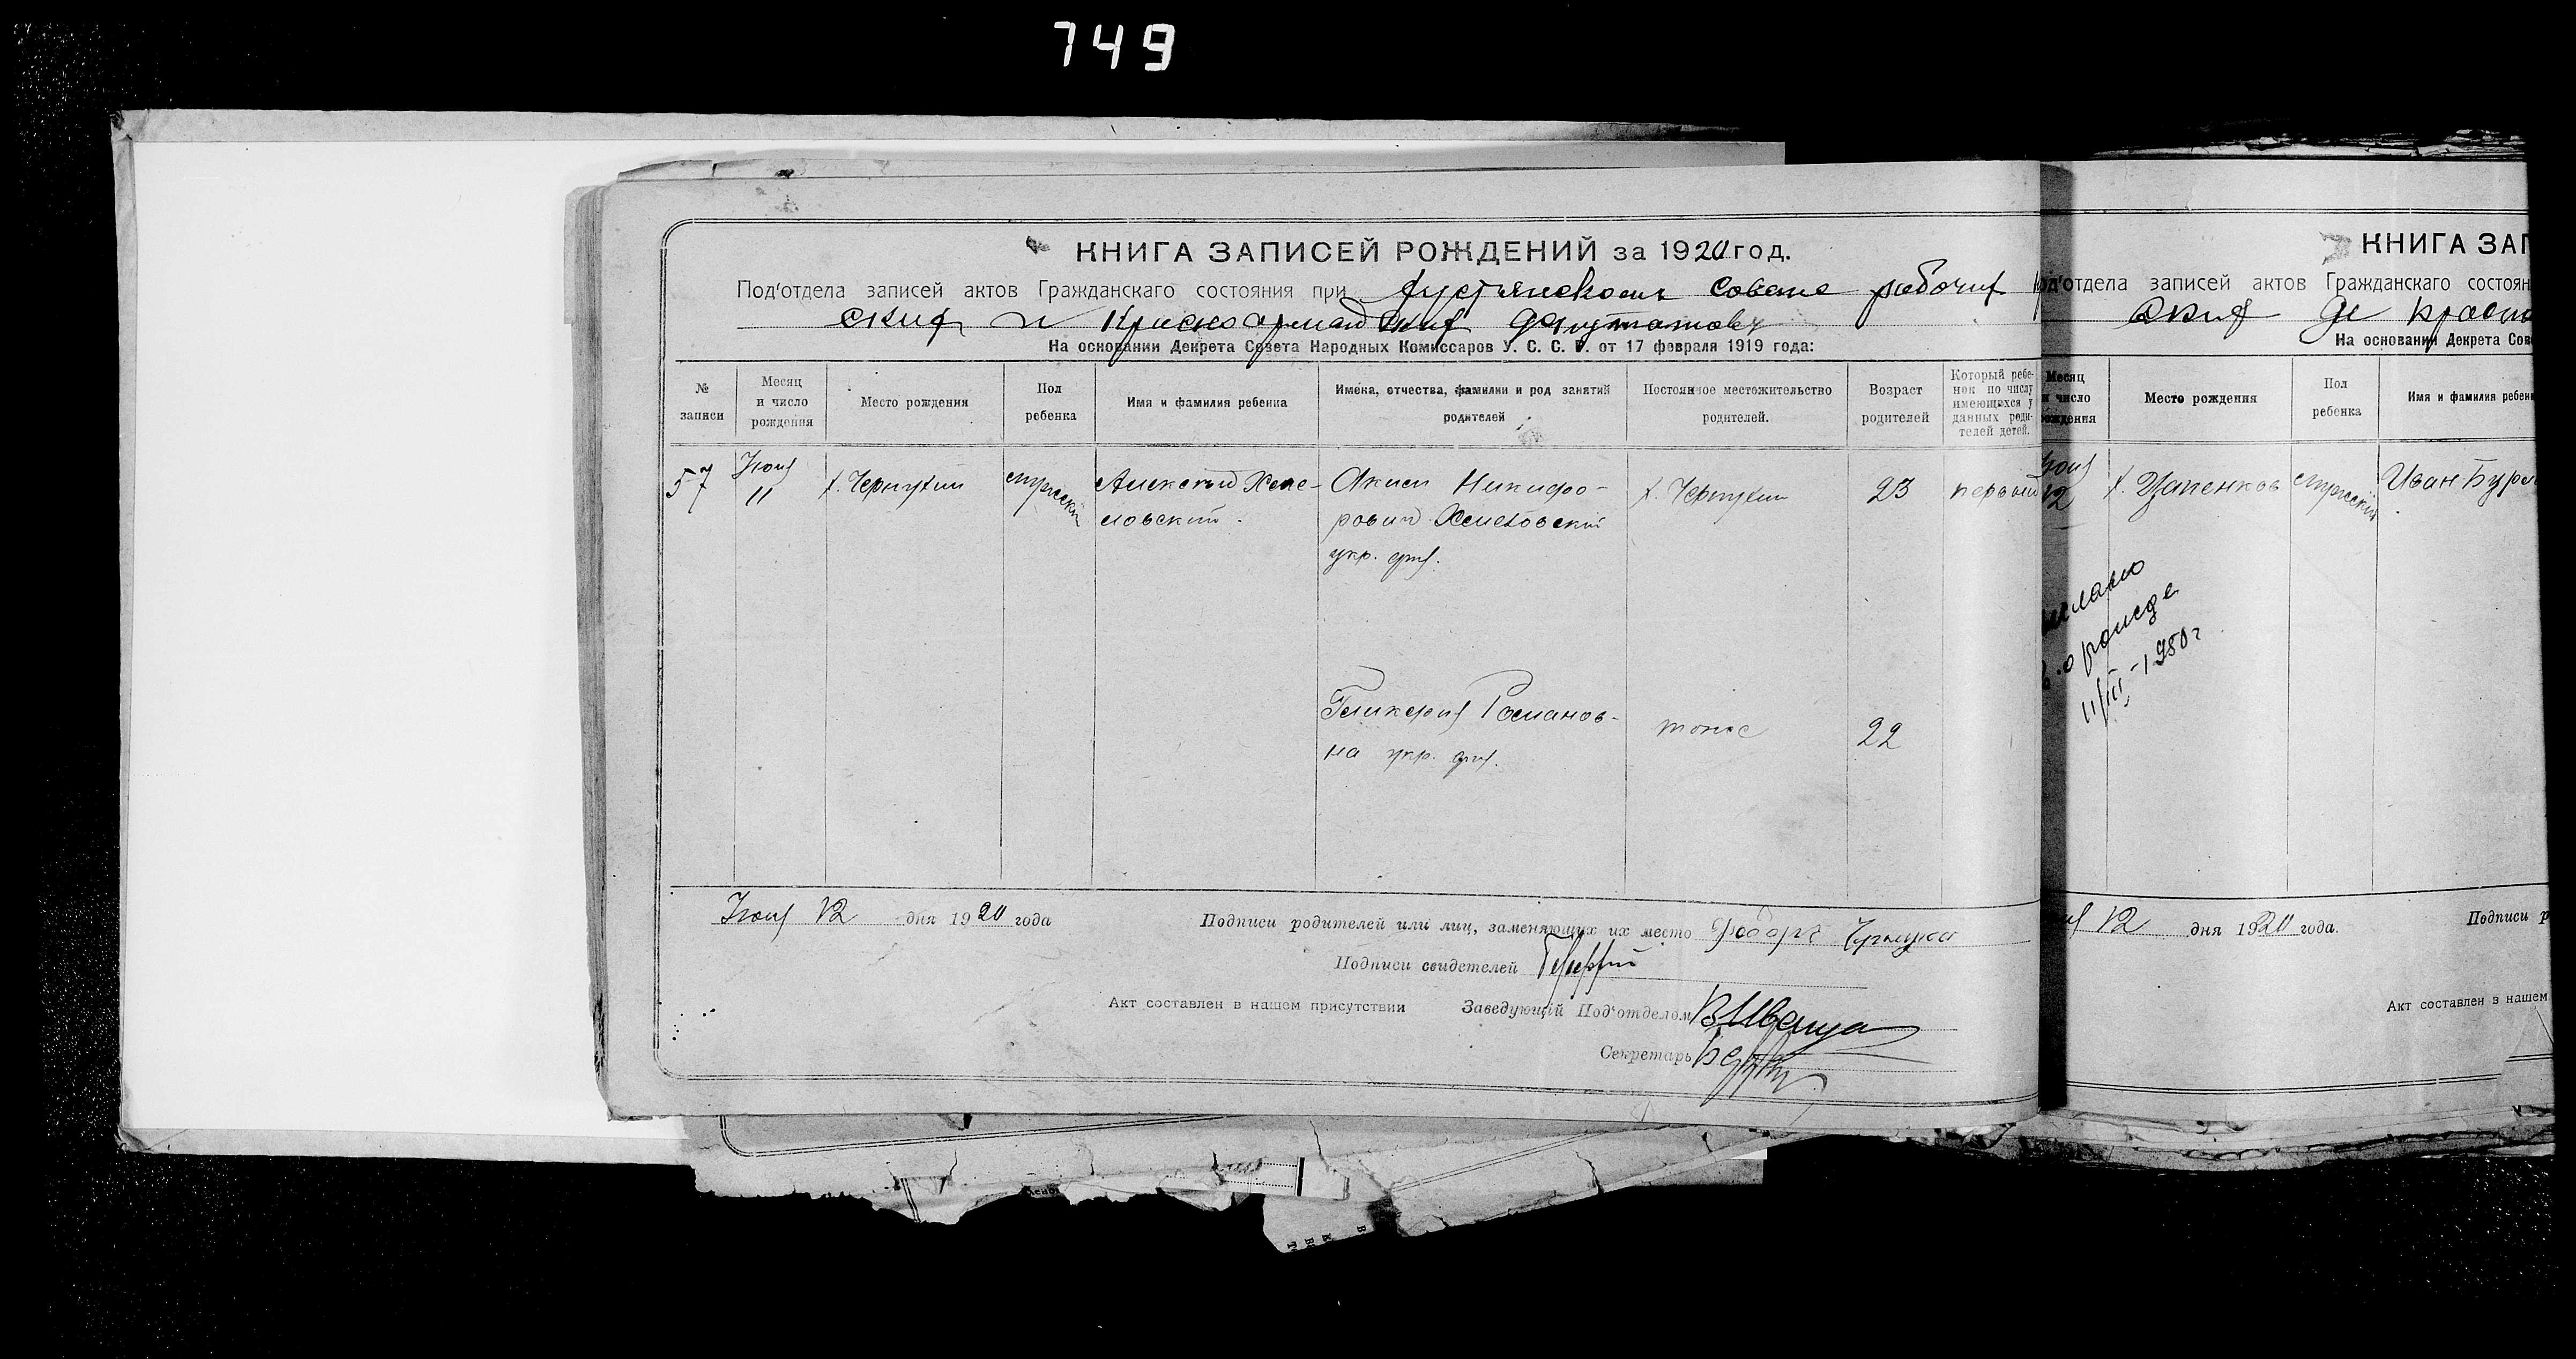 749
КНИГА ЗАПИСЕЙ РОЖДЕНИЙ за 1920 год.
Под'отдела записей актов Гражданскаго состояния при Хустянском Совете рабочих
ских и Красноармейских Депутатов
На основании Декрета Совета Народных Комиссаров У. С. С. Р. от 17 февраля 1919 года:
№ записи
Месяц и число рождения
Место рождения
Пол ребенка
Имя и фамилия ребенка
Имена, отчества, фамилии и род занятий родителей
Постоянное местожительство родителей.
Возраст родителей
Который ребенок по числу имеющихся у данных родителей детей.
57
Июня 11
х. Чернухин
мужской
Алексей
Аким Никифорович
укр. гр.
х. Чернухин
23
первый
Гликерия Романов-
на укр. гр.
тоже
22
Июня 12 дня 1920 года
Подписи родителей или лиц, заменяющих их место
Подписи свидетелей
Акт составлен в нашем присутствии
Заведующій Под'отделом
Секретарь
КНИГА ЗАП
од'отдела записей актов Гражданскаго состоян
На основании Декрета Сов
Месяц и число рождения
Место рождения
Пол ребенка
Имя и фамилия ребен
12
х. Цапенков
мужской
Иван
11/III-1950г
12 дня 1920 года.
Подписи р
Акт составлен в нашем